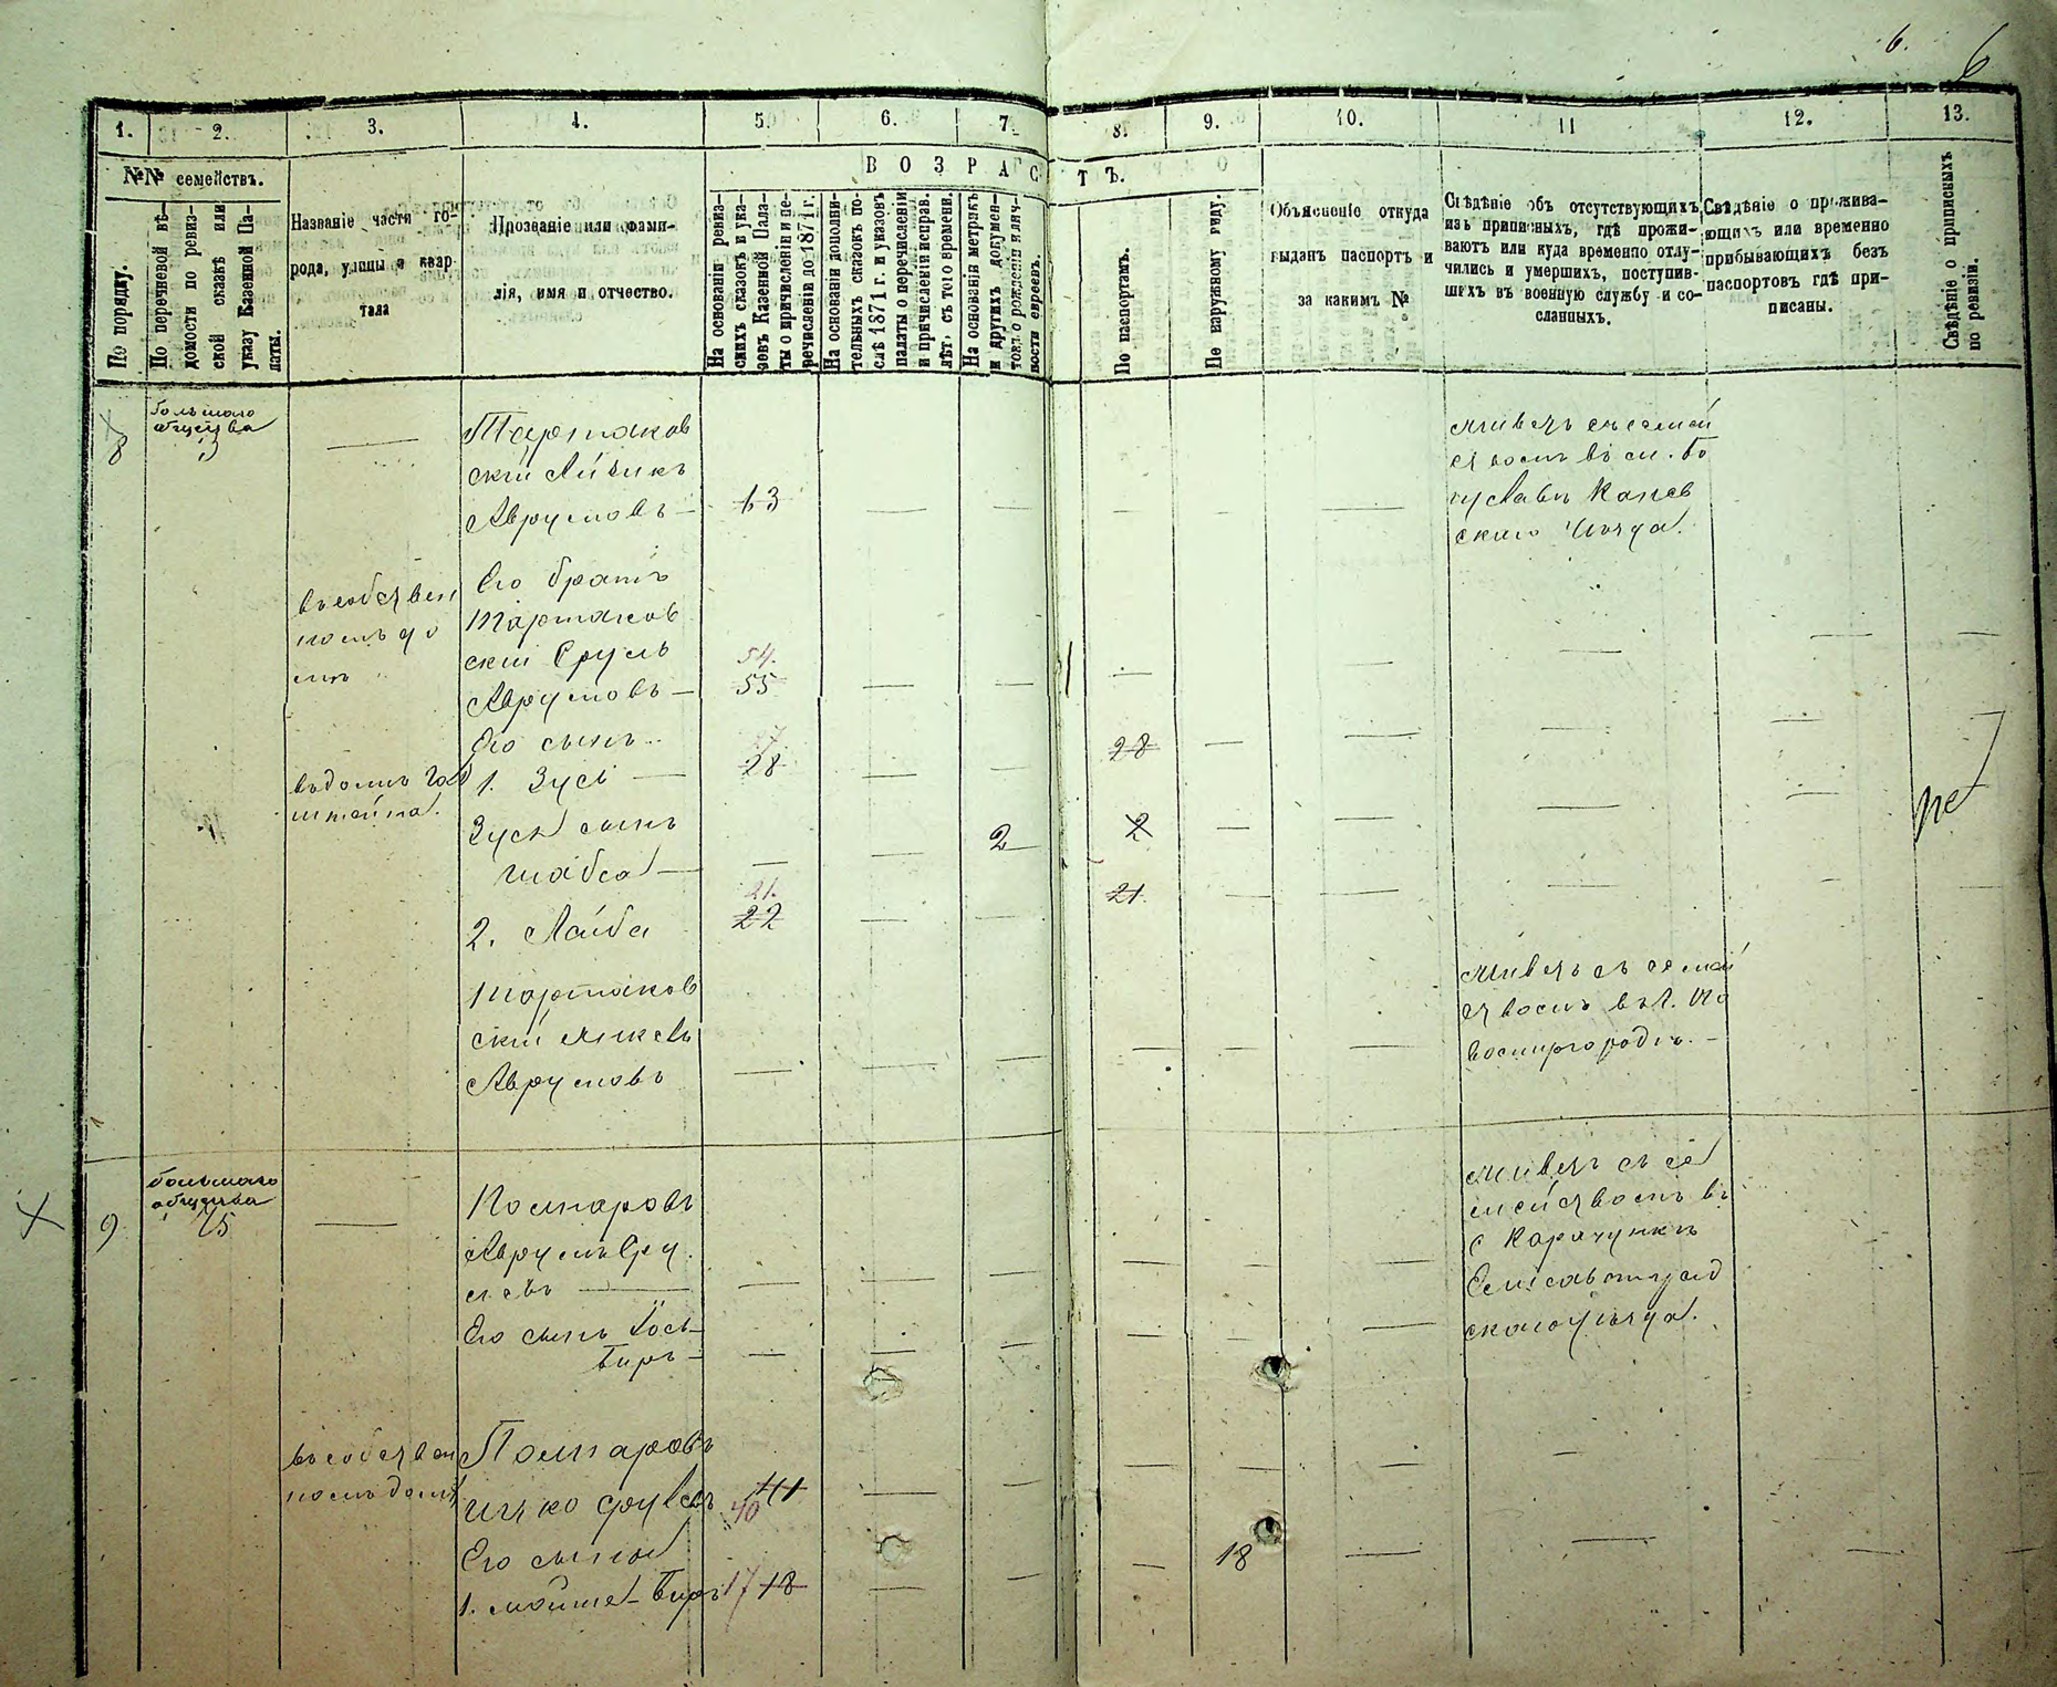 6. 6
1. 2. 3. 4. 5. 6. 7. 8. 9. 10. 11 12. 13.
№№ семействъ.
По порядку.
По перечневой вѣ-
домости по ревиз-
ской сказкѣ или
указу Казенной Па-
латы.
Названіе части го-
рода, улицы и квар
тала
Прозваніе или фами-
лія, имя и отчество.
ВОЗРАСТЪ.
На основаніи ревиз-
скихъ сказокъ и ука-
зовъ Казенной Пала-
ты о причисленіи и пе-
речисленіе до 1871 г.
На основаніи дополни-
тельныхъ сказокъ по-
слѣ 1871 г. и указовъ
палаты о перечисленіи
и причисленіи исправ.
лѣт. съ того времени.
На основаніи метрикъ
и другихъ докумен-
товъ о рожденіи и лич-
ности евреевъ.
По паспортамъ.
По наружному виду.
Объясненіе откуда
выданъ паспортъ и
за какимъ №
Свѣдѣніе объ отсутствующихъ
изъ приписныхъ, гдѣ прожи-
ваютъ или куда временно отлу-
чились и умершихъ, поступив-
шихъ въ военную службу и со-
сланныхъ.
Свѣдѣніе о прожива-
ющихъ или временно
прибывающихъ безъ
паспортовъ гдѣ при-
писаны.
Свѣдѣніе о приписныхъ
по ревизіи.
8
большаго
общества
13
Тартаков
скій Айзикъ
Аврумовъ — 63
живетъ съ семей
ствомъ въ м. Бо
гуславѣ Канев
скаго Уѣзда.
въ собствен
номъ до
мѣ
Его братъ
Тартаков
скій Сруль 54.
Аврумовъ — 55
Его сынъ 27.
въ домѣ Гол
штейна.
1. Зусь — 28 28
Зуся сынъ
шабса — 2 2
21.
2. Лейба 22 21
нет
Тартаков
скій Янкель
Аврумовъ
живетъ съ семей
ствомъ въ г. Но
вомиргородѣ. —
9
большаго
общества
15
Комаровъ
Аврумъ Сру
левъ
Его сынъ Іось-
Беръ —
живетъ съ се
мействомъ въ
с Карачункѣ
Елисаветград
скаго уѣзда.
въ собствен
номъ домѣ
Комаровъ
Ицко Срулевъ 41 40
Его сыновья
1. Мойше-Беръ 17 18 18